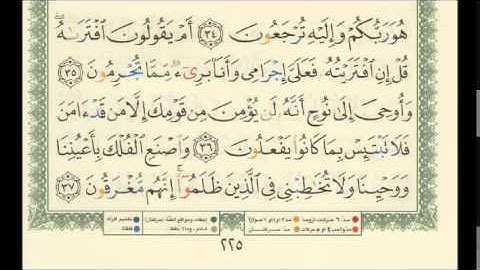 هُوَ رَبُّكُمْ وَإِلَيْهِ تُرْجَعُونَ ٣٤ أَمْ يَقُولُونَ ٱفْتَرَىٰهُ ۖ
قُلْ إِنِ ٱفْتَرَيْتُهُۥ فَعَلَىَّ إِجْرَامِى وَأَنَا۠ بَرِىٓءٌ مِّمَّا تُجْرِمُونَ ٣٥
وَأُوحِىَ إِلَىٰ نُوحٍ أَنَّهُۥ لَن يُؤْمِنَ مِن قَوْمِكَ إِلَّا مَن قَدْ ءَامَنَ
فَلَا تَبْتَئِسْ بِمَا كَانُوا۟ يَفْعَلُونَ ٣٦ وَٱصْنَعِ ٱلْفُلْكَ بِأَعْيُنِنَا
وَوَحْيِنَا وَلَا تُخَٰطِبْنِى فِى ٱلَّذِينَ ظَلَمُوٓا۟ ۚ إِنَّهُم مُّغْرَقُونَ ٣٧
٢٢٥